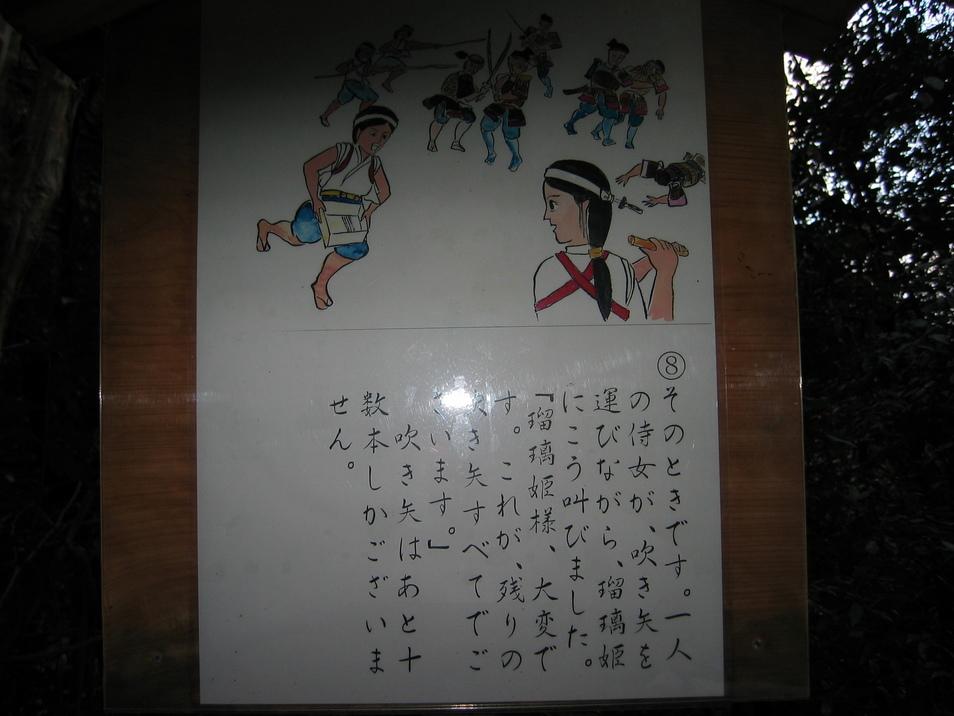 ⑧そのときです。一人
の侍女が、吹き矢を
運びながら、瑠璃姫
にこう叫びました。
『瑠璃姫様、大変で
す。これが、残りの
吹き矢すべてでご
ざいます。』
吹き矢はあと十
数本しかございま
せん。